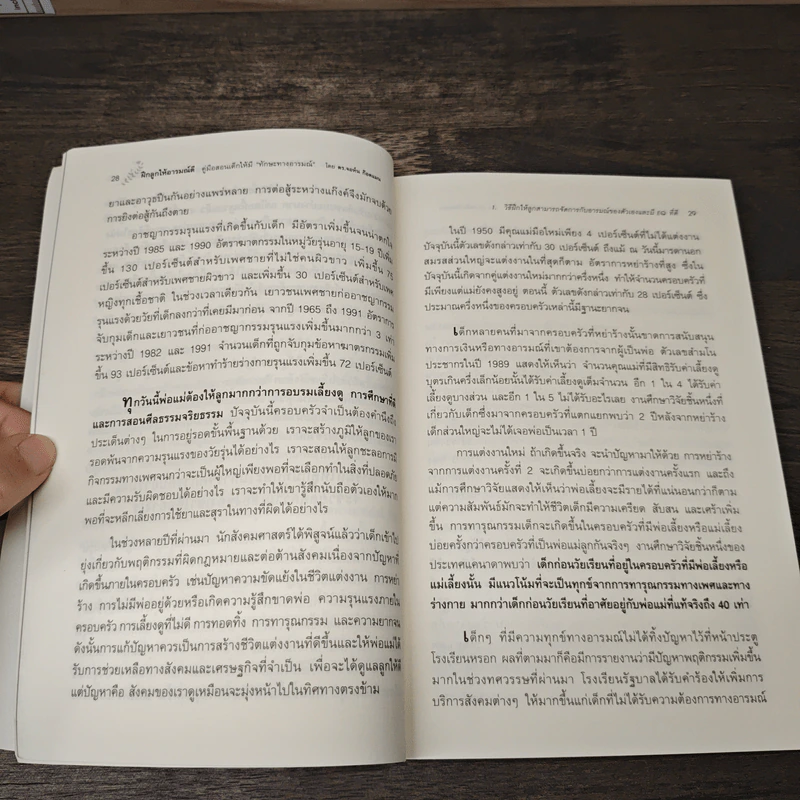 28 ฝึกลูกให้อารมณ์ดี คู่มือสอนเด็กให้มี "ทักษะทางอารมณ์" โดย ดร.จอห์น
ยาและอาวุธปืนกันอย่างแพร่หลาย การต่อสู้ระหว่างแก๊งค์จึงมักจบด้วย
การยิงต่อสู้กันถึงตาย
อาชญากรรมรุนแรงที่เกิดขึ้นกับเด็ก มีอัตราเพิ่มขึ้นจนน่าตกใ
ระหว่างปี 1985 และ 1990 อัตราฆาตกรรมในหมู่วัยรุ่นอายุ 15-19 ปีเพิ่ม
ขึ้น 130 เปอร์เซ็นต์สำหรับเพศชายที่ไม่ใช่คนผิวขาว เพิ่มขึ้น 75
เปอร์เซ็นต์สำหรับเพศชายผิวขาว และเพิ่มขึ้น 30 เปอร์เซ็นต์สำหรับเพศ
หญิงทุกเชื้อชาติ ในช่วงเวลาเดียวกัน เยาวชนเพศชายก่ออาชญากรรม
รุนแรงด้วยวัยที่เด็กลงกว่าที่เคยมีมาก่อน จากปี 1965 ถึง 1991 อัตราการ
จับกุมเด็กและเยาวชนที่ก่ออาชญากรรมรุนแรงเพิ่มขึ้นมากกว่า 3 เท่า
ระหว่างปี 1982 และ 1991 จำนวนเด็กที่ถูกจับกุมข้อหาฆาตรกรรมเพิ่ม
ขึ้น 93 เปอร์เซ็นต์และข้อหาทำร้ายร่างกายรุนแรงเพิ่มขึ้น 72 เปอร์เซ็นต์
ทุกวันนี้พ่อแม่ต้องให้ลูกมากกว่าการอบรมเลี้ยงดู การศึกษาที่ดี
และการสอนศีลธรรมจริยธรรม ปัจจุบันนี้ครอบครัวจำเป็นต้องคำนึงถึง
ประเด็นต่างๆ ในการอยู่รอดขั้นพื้นฐานด้วย เราจะสร้างภูมิให้ลูกของเรา
รอดพ้นจากความรุนแรงของวัยรุ่นได้อย่างไร เราจะสอนให้ลูกชะลอการมี
กิจกรรมทางเพศจนกว่าจะเป็นผู้ใหญ่เพียงพอที่จะเลือกทำในสิ่งที่ปลอดภัย
และมีความรับผิดชอบได้อย่างไร เราจะทำให้เขารู้สึกนับถือตัวเองให้มาก
พอที่จะหลีกเลี่ยงการใช้ยาและสุราในทางที่ผิดได้อย่างไร
ในช่วงหลายปีที่ผ่านมา นักสังคมศาสตร์ได้พิสูจน์แล้วว่าเด็กเข้าไป
ยุ่งเกี่ยวกับพฤติกรรมที่ผิดกฎหมายและต่อต้านสังคมเนื่องจากปัญหาที่
เกิดขึ้นภายในครอบครัว เช่นปัญหาความขัดแย้งในชีวิตแต่งงาน การหย่า
ร้าง การไม่มีพ่ออยู่ด้วยหรือเกิดความรู้สึกขาดพ่อ ความรุนแรงภายใน
ครอบครัว การเลี้ยงดูที่ไม่ดี การทอดทิ้ง การทารุณกรรม และความยากจน
ดังนั้นการแก้ปัญหาควรเป็นการสร้างชีวิตแต่งงานที่ดีขึ้นและให้พ่อแม่ได้
รับการช่วยเหลือทางสังคมและเศรษฐกิจที่จำเป็น เพื่อจะได้ดูแลลูกให้ดี
แต่ปัญหาคือ สังคมของเราดูเหมือนจะมุ่งหน้าไปในทิศทางตรงข้าม
1. วิธีฝึกให้ลูกสามารถจัดการกับอารมณ์ของตัวเองและมี EQ ที่ดี 29
ในปี 1950 มีคุณแม่มือใหม่เพียง 4 เปอร์เซ็นต์ที่ไม่ได้แต่งงาน
ปัจจุบันนี้ตัวเลขดังกล่าวเท่ากับ 30 เปอร์เซ็นต์ ถึงแม้ ณ วันนี้มารดานอก
สมรสส่วนใหญ่จะแต่งงานในที่สุดก็ตาม อัตราการหย่าร้างที่สูง ซึ่งใน
ปัจจุบันนี้เกิดจากคู่แต่งงานใหม่มากกว่าครึ่งหนึ่ง ทำให้จำนวนครอบครัวที่
มีเพียงแต่แม่ยังคงสูงอยู่ ตอนนี้ ตัวเลขดังกล่าวเท่ากับ 28 เปอร์เซ็นต์ ซึ่ง
ประมาณครึ่งหนึ่งของครอบครัวเหล่านี้มีฐานะยากจน
เด็กหลายคนที่มาจากครอบครัวที่หย่าร้างนั้นขาดการสนับสนุน
ทางการเงินหรือทางอารมณ์ที่เขาต้องการจากผู้เป็นพ่อ ตัวเลขสำมะโน
ประชากรในปี 1989 แสดงให้เห็นว่า จำนวนคุณแม่ที่มีสิทธิรับค่าเลี้ยงดู
บุตรเกินครึ่งเล็กน้อยนั้นได้รับค่าเลี้ยงดูเต็มจำนวน อีก 1 ใน 4 ได้รับค่า
เลี้ยงดูบางส่วน และอีก 1 ใน 5 ไม่ได้รับอะไรเลย งานศึกษาวิจัยชิ้นหนึ่งที่
เกี่ยวกับเด็กซึ่งมาจากครอบครัวที่แตกแยกพบว่า 2 ปีหลังจากหย่าร้าง
เด็กส่วนใหญ่จะไม่ได้เจอพ่อเป็นเวลา 1 ปี
การแต่งงานใหม่ ถ้าเกิดขึ้นจริง จะนำปัญหามาให้ด้วย การหย่าร้าง
จากการแต่งงานครั้งที่ 2 จะเกิดขึ้นบ่อยกว่าการแต่งงานครั้งแรก และถึง
แม้การศึกษาวิจัยแสดงให้เห็นว่าพ่อเลี้ยงจะมีรายได้ที่แน่นอนกว่าก็ตาม
แต่ความสัมพันธ์มักจะทำให้ชีวิตเด็กมีความเครียด สับสน และเศร้าเพิ่ม
ขึ้น การทารุณกรรมเด็กจะเกิดขึ้นในครอบครัวที่มีพ่อเลี้ยงหรือแม่เลี้ยง
บ่อยครั้งกว่าครอบครัวที่เป็นพ่อแม่ลูกกันจริงๆ งานศึกษาวิจัยชิ้นหนึ่งของ
ประเทศแคนาดาพบว่า เด็กก่อนวัยเรียนที่อยู่ในครอบครัวที่มีพ่อเลี้ยงหรือ
แม่เลี้ยงนั้น มีแนวโน้มที่จะเป็นทุกข์จากการทารุณกรรมทางเพศและทาง
ร่างกาย มากกว่าเด็กก่อนวัยเรียนที่อาศัยอยู่กับพ่อแม่ที่แท้จริงถึง 40 เท่า
เด็กๆ ที่มีความทุกข์ทางอารมณ์ไม่ได้ทิ้งปัญหาไว้ที่หน้าประตู
โรงเรียนหรอก ผลที่ตามมาก็คือมีการรายงานว่ามีปัญหาพฤติกรรมเพิ่มขึ้น
มากในช่วงทศวรรษที่ผ่านมา โรงเรียนรัฐบาลได้รับคำร้องให้เพิ่มการ
บริการสังคมต่างๆ ให้มากขึ้นแก่เด็กที่ไม่ได้รับความต้องการทางอารมณ์